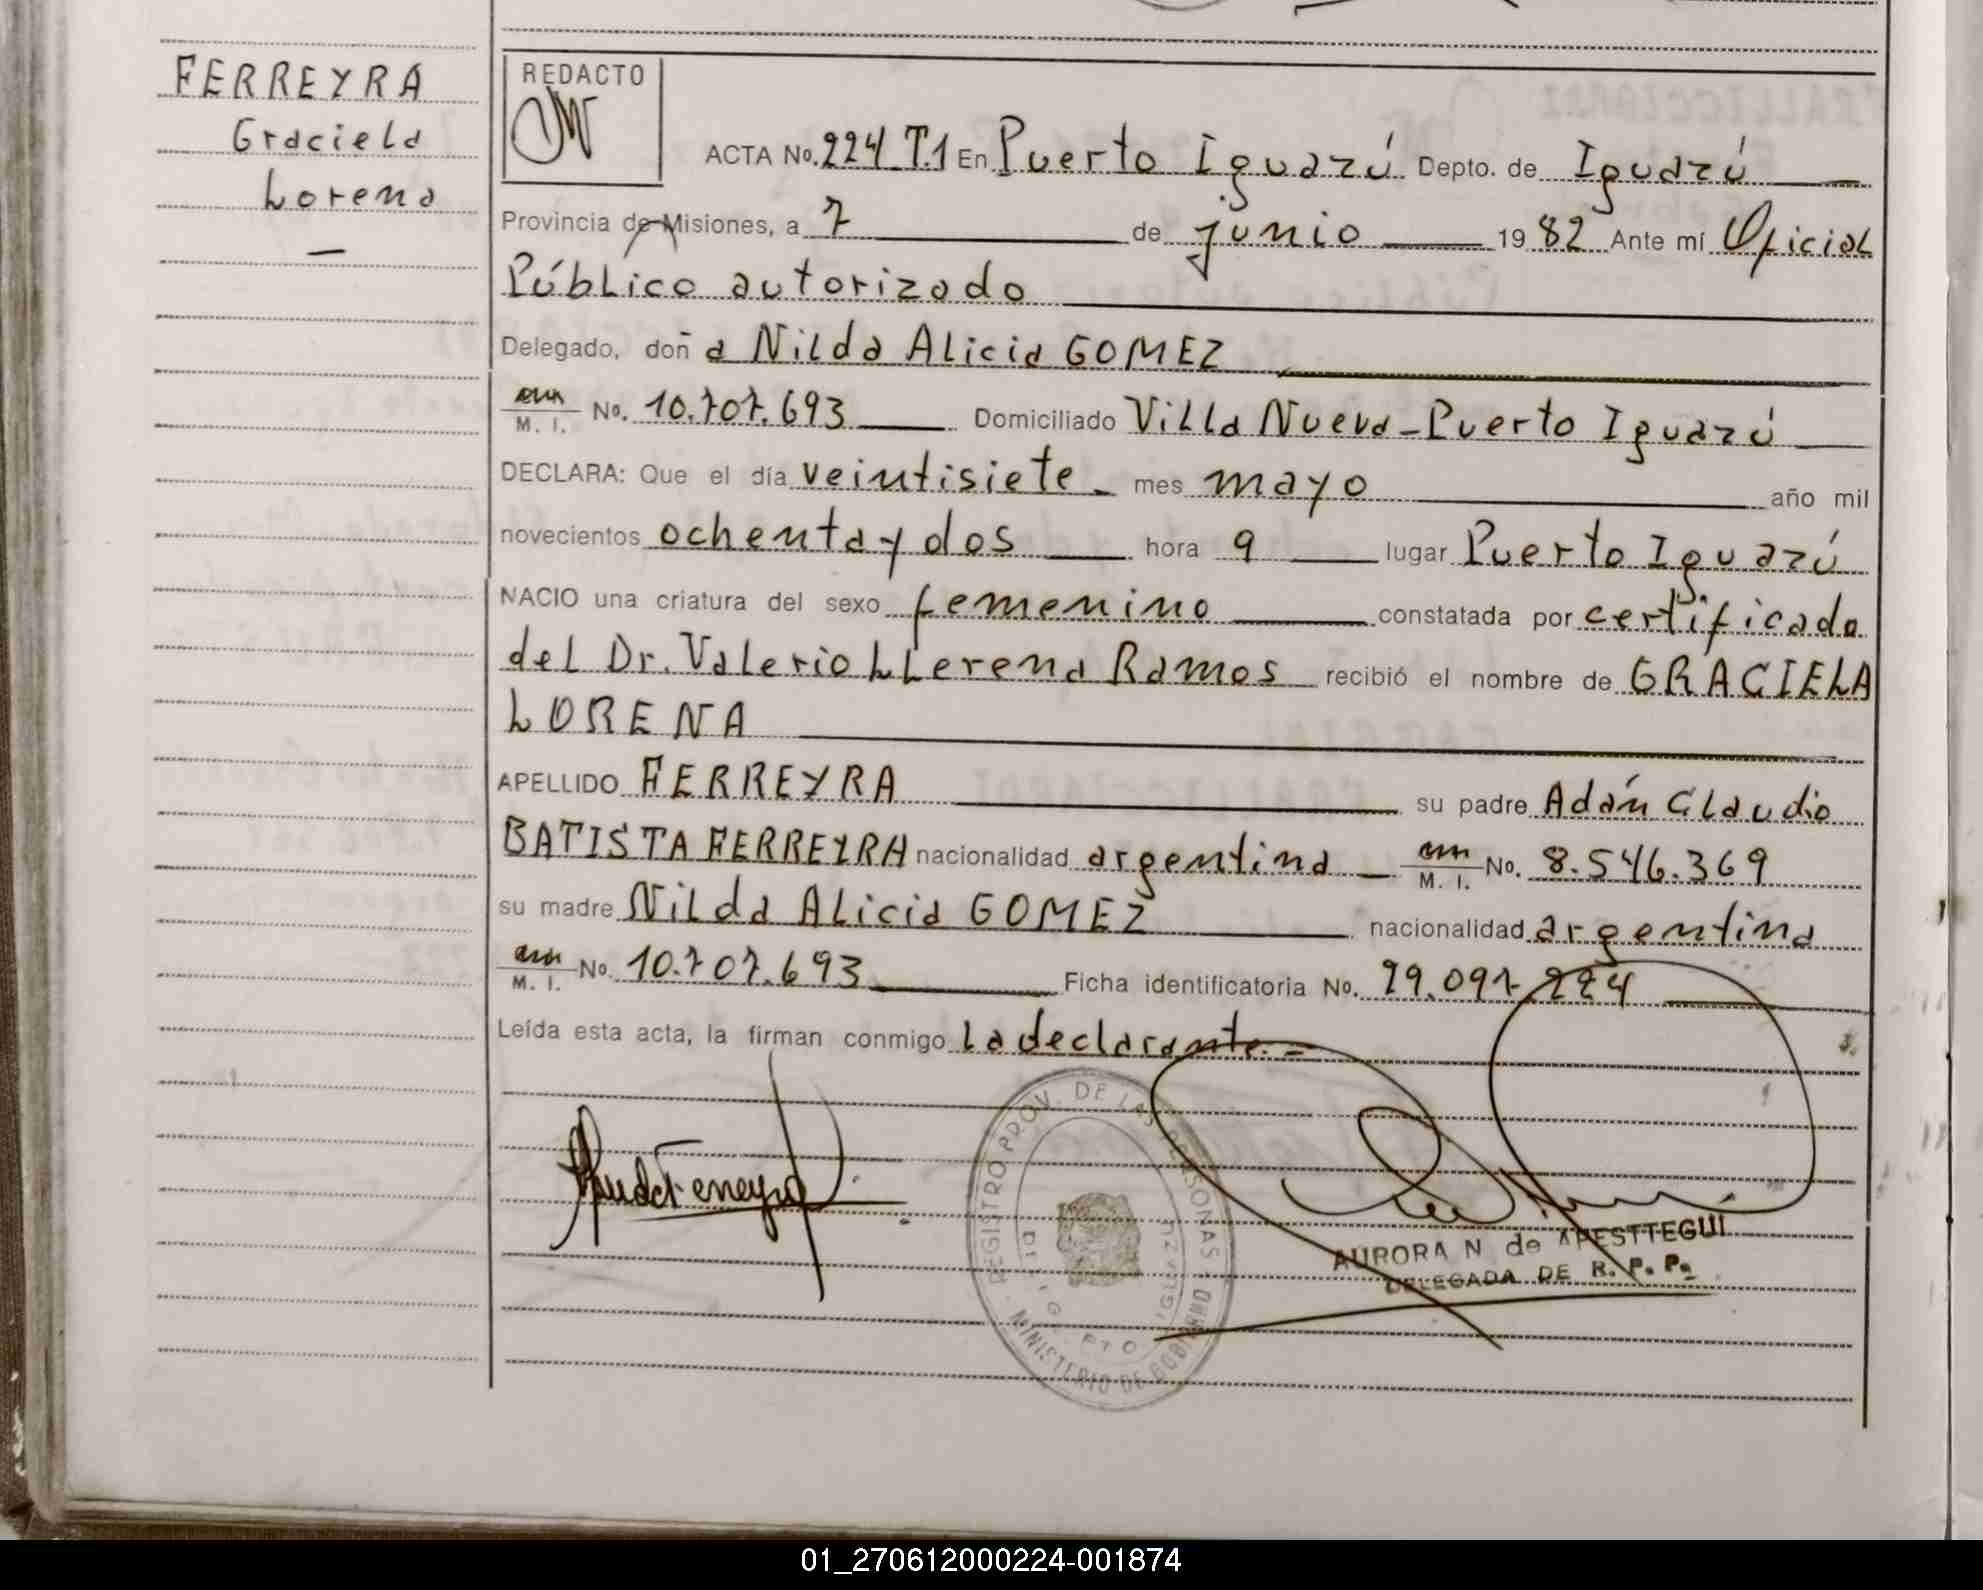 FERREYRA
Graciela
Lorena
REDACTO
ACTA No. 224 T.1 En Puerto Iguazú Depto. de Iguazú
Provincia de Misiones, a 7 de junio 19 82 Ante mí Oficial
Público autorizado
Delegado, doñ a Nilda Alicia GOMEZ
M. I. No. 10.707.693 Domiciliado Villa Nueva - Puerto Iguazú
DECLARA: Que el día veintisiete - mes mayo año mil
novecientos ochenta y dos hora 9 lugar Puerto Iguazú
NACIO una criatura del sexo femenino constatada por certificado
del Dr. Valerio LLerena Ramos recibió el nombre de GRACIELA
LORENA
APELLIDO FERREYRA su padre Adán Claudio
BATISTA FERREYRA nacionalidad argentina M. I. No. 8.546.369
su madre Nilda Alicia GOMEZ nacionalidad argentina
M. I. No. 10.707.693 Ficha identificatoria No. 29.097.224
Leída esta acta, la firman conmigo la declarante. -
REGISTRO PROV. DE LAS PERSONAS
MINISTERIO DE GOBIERNO
AURORA N. de APESTTEGUI
DELEGADA DE R. P. P.
01_270612000224-001874